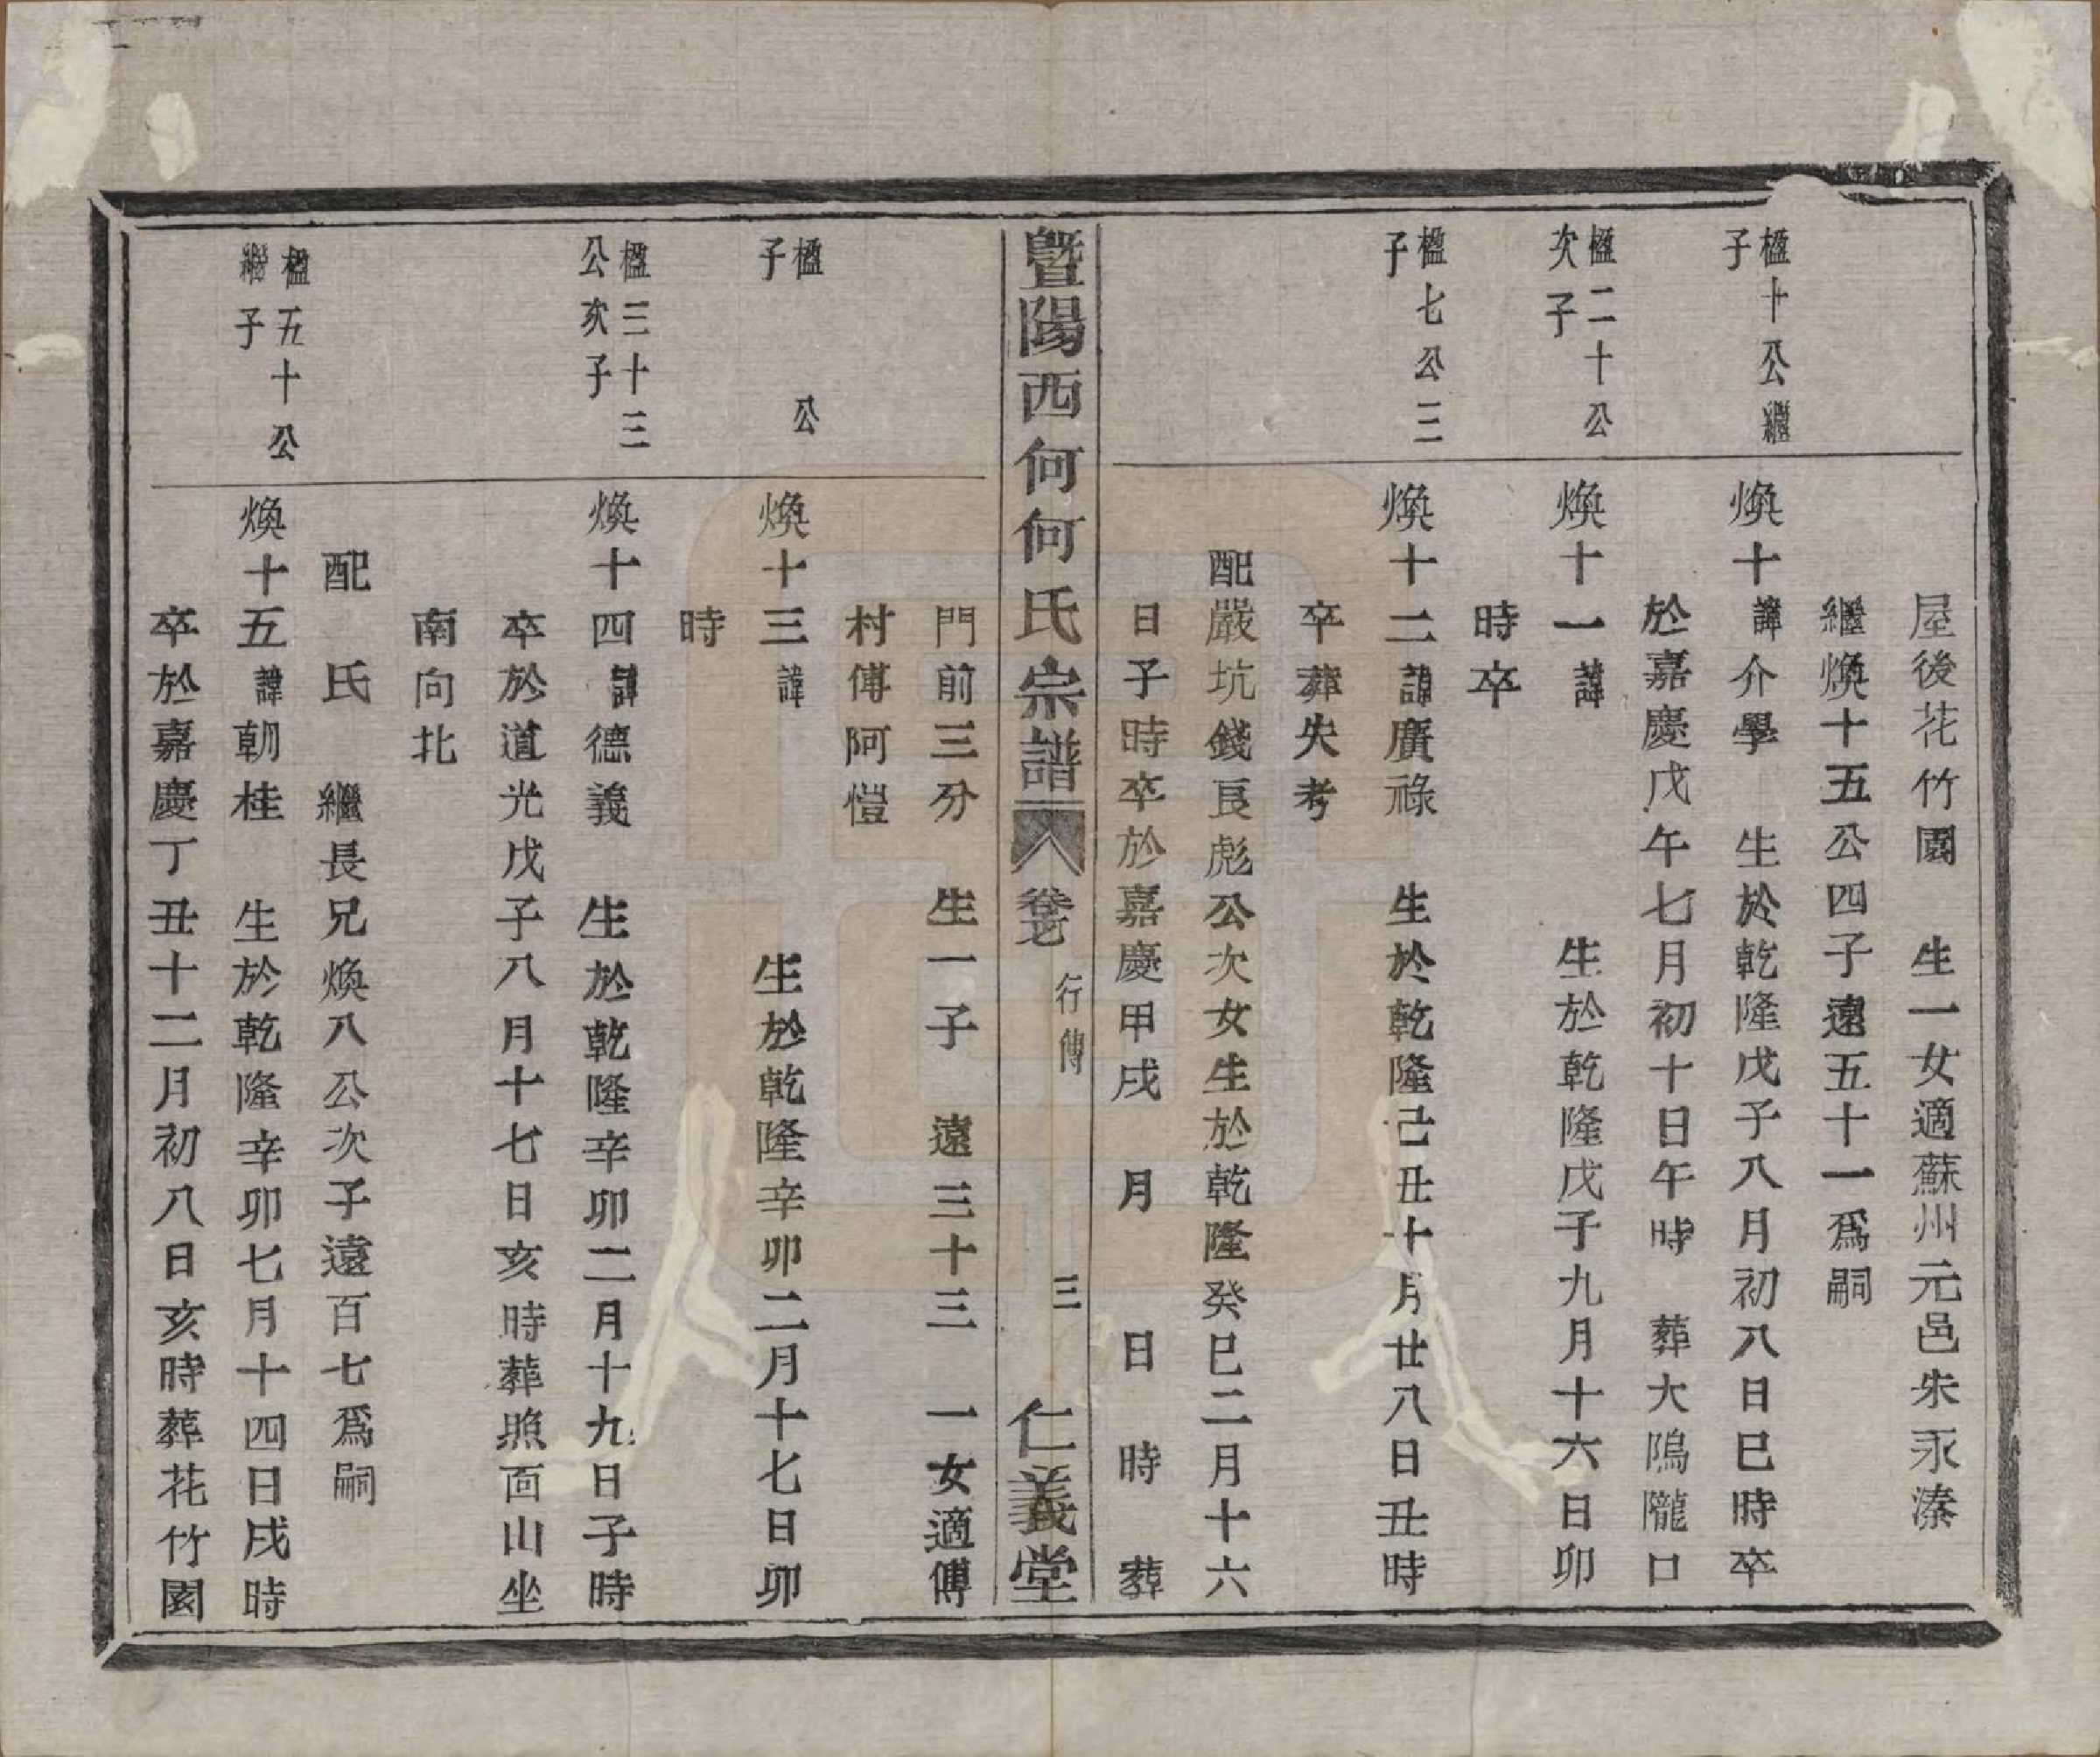 屋後花竹園　生一女適蘇州元邑朱永溱
繼煥十五公四子遠五十一爲嗣
楹十公繼
子
煥十諱介學　生於乾隆戊子八月初八日巳時卒
於嘉慶戊午七月初十日午時　葬大隝隴口
楹二十公
次子
煥十一諱　　　　生於乾隆戊子九月十六日卯
時卒
楹七公三
子
煥十二諱廣祿　生於乾隆己丑十月廿八日丑時
卒葬失考
配嚴坑錢良彪公次女生於乾隆癸巳二月十六
日子時卒於嘉慶甲戌　月　　日　時　葬
暨陽西何何氏宗譜　卷七　行傳　三　仁義堂
門前三分　生一子　遠三十三　一女適傅
村傅阿愷
楹　　公
子
煥十三諱　　　　生於乾隆辛卯二月十七日卯
時
楹三十三
公次子
煥十四諱德義　生於乾隆辛卯二月十九日子時
卒於道光戊子八月十七日亥時葬照面山坐
南向北
配　氏　繼長兄煥八公次子遠百七爲嗣
楹五十公
繼子
煥十五諱朝桂　生於乾隆辛卯七月十四日戌時
卒於嘉慶丁丑十二月初八日亥時葬花竹園